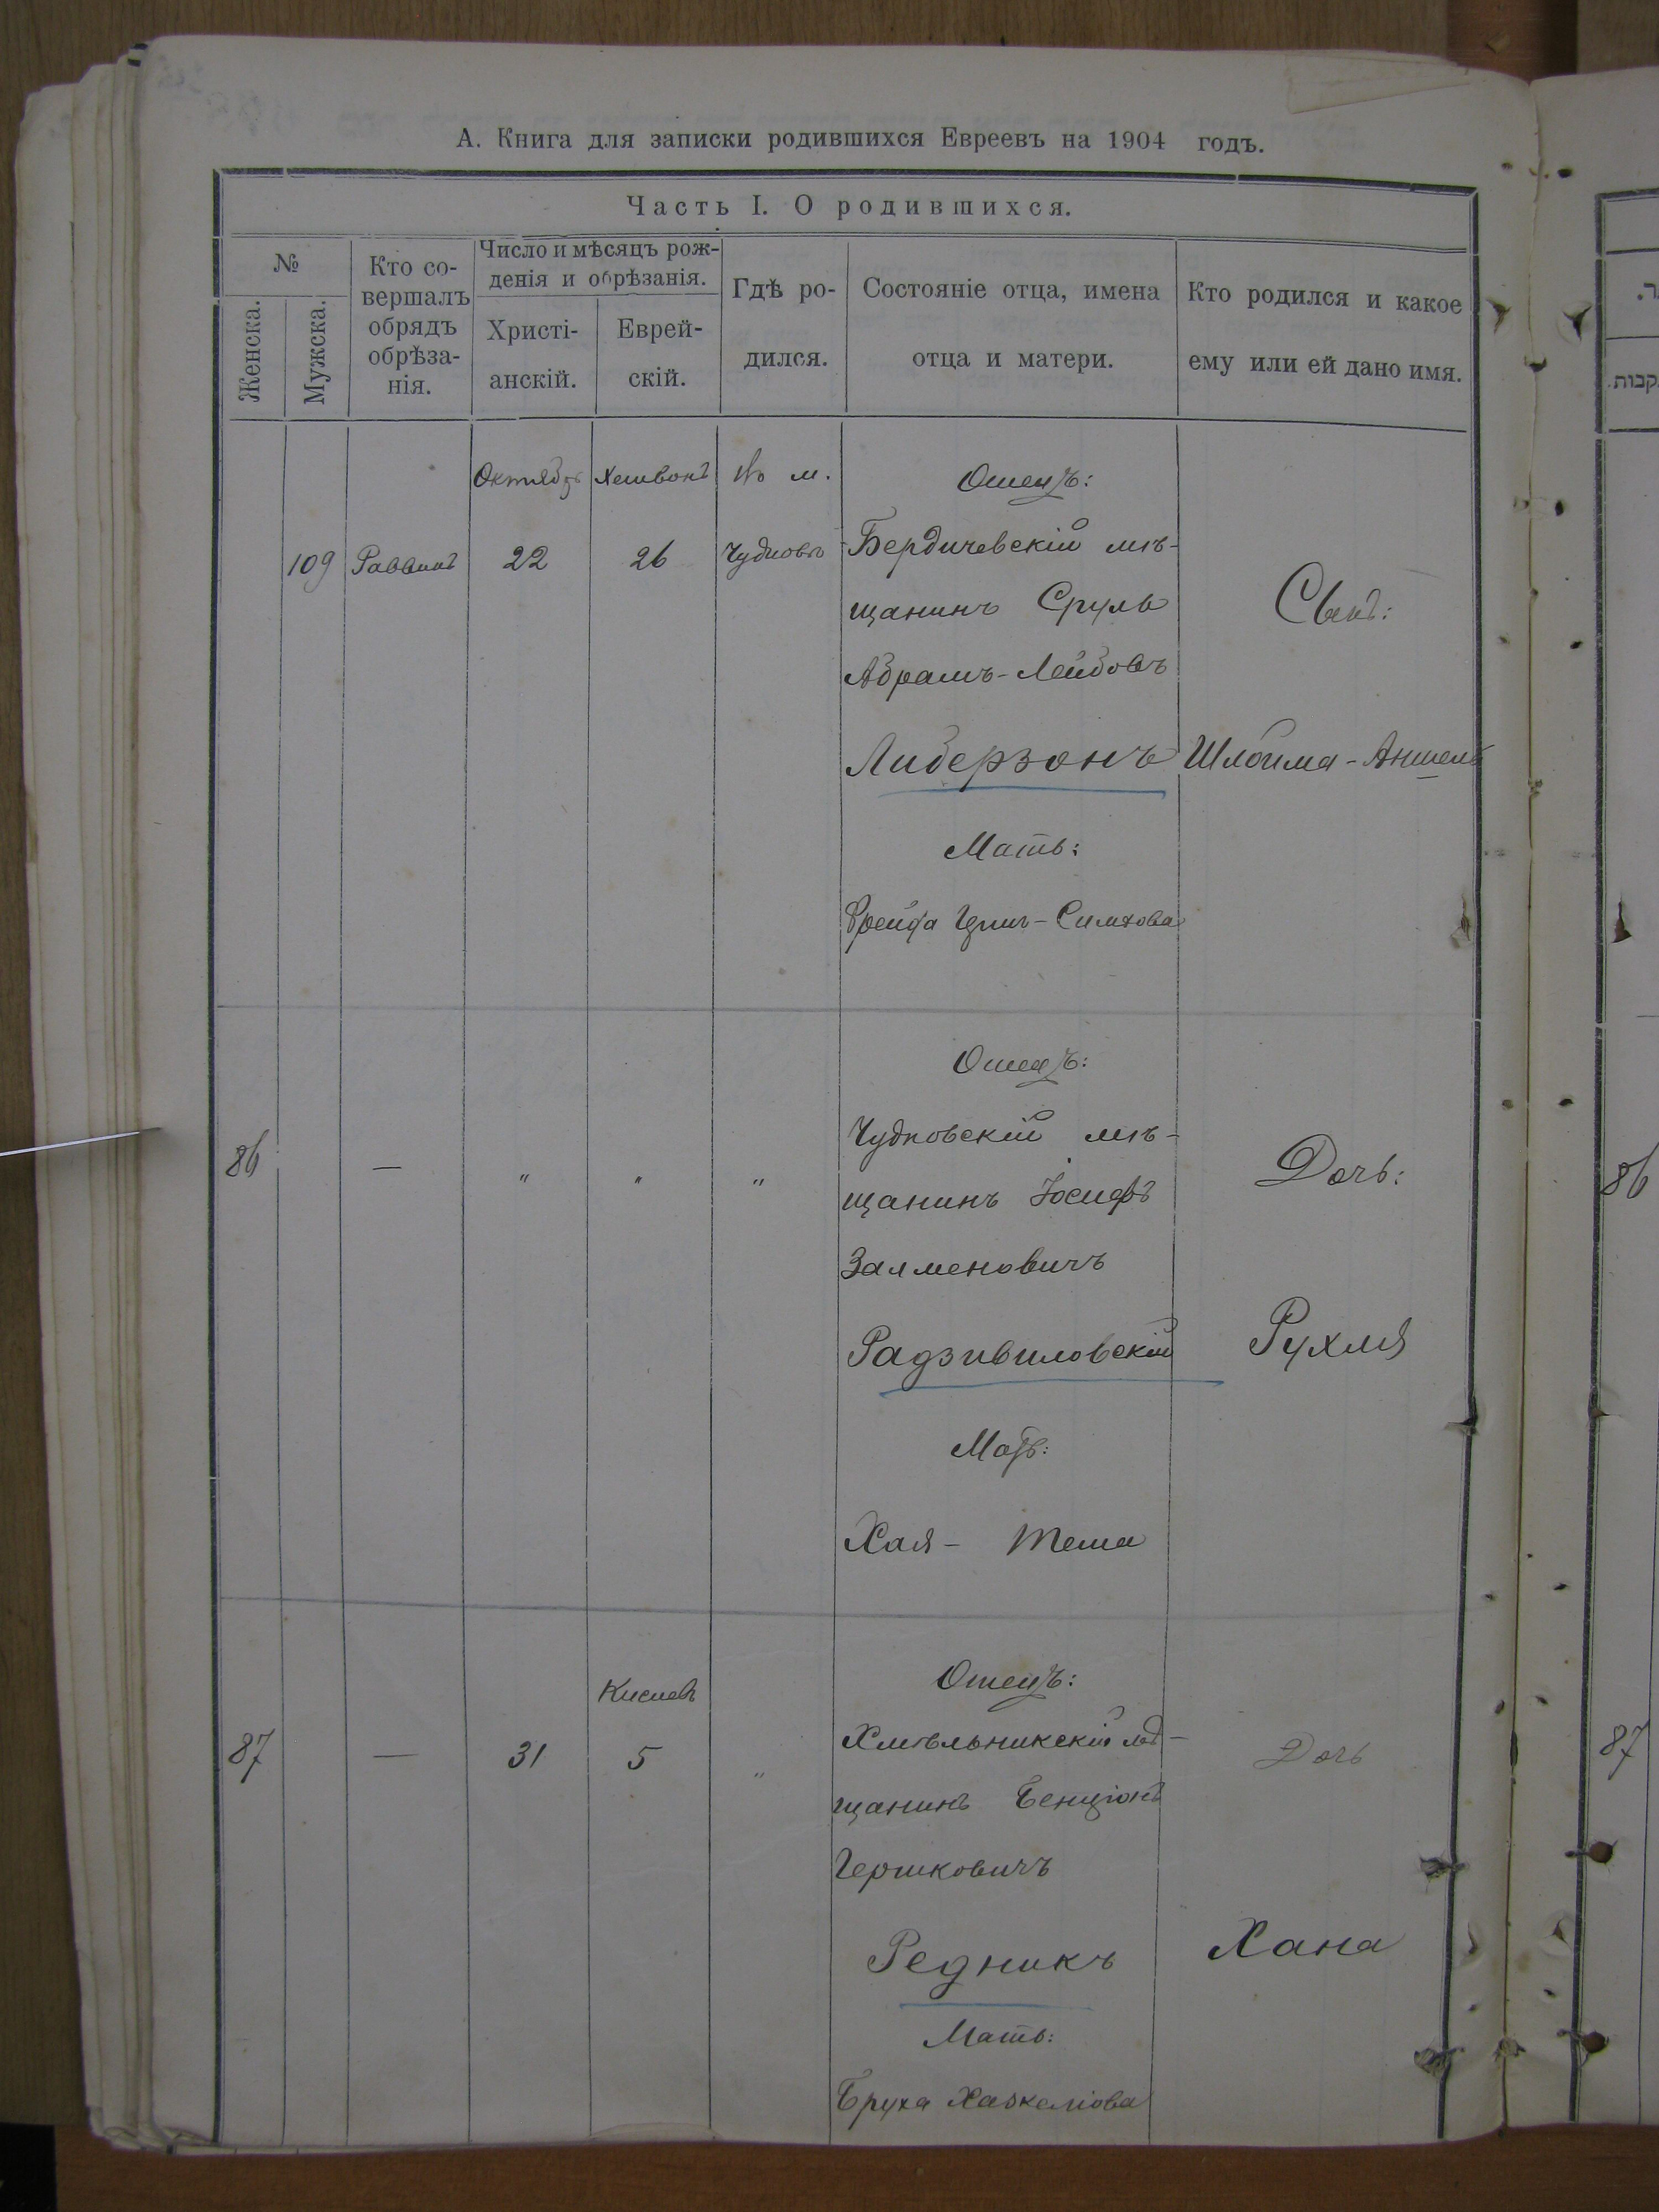 А. Книга для записки родившихся Евреевъ на 1904 годъ.
Часть I. О родившихся.
№
Женска.
Мужска.
Кто со-
вершалъ
обрядъ
обрѣза-
нія.
Число и мѣсяцъ рож-
денія и обрѣзанія.
Христі-
анскій.
Еврей-
скій.
Гдѣ ро-
дился.
Состояніе отца, имена
отца и матери.
Кто родился и какое
ему или ей дано имя.
109
Раввинъ
Октябрь
22
Хешвонъ
26
Въ м.
Чудновъ
Отецъ:
Бердичевскій мѣ-
щанинъ Сруль
Абрамъ-Лейбовъ
Либерзонъ
Мать:
Фрейда Гершъ-Симхова
Сынъ:
Шлойма-Аншель
86
—
"
"
"
Отецъ:
Чудновскій мѣ-
щанинъ Іосифъ
Залменовичъ
Радзивиловскій
Мать:
Хая - Теша
Дочь:
Рухля
87
—
31
Кислевъ
5
"
Отецъ:
Хмѣльникскій мѣ-
щанинъ Бенціонъ
Гершковичъ
Редникъ
Мать:
Бруха Хаскелiова
Дочь
Хана
86
87